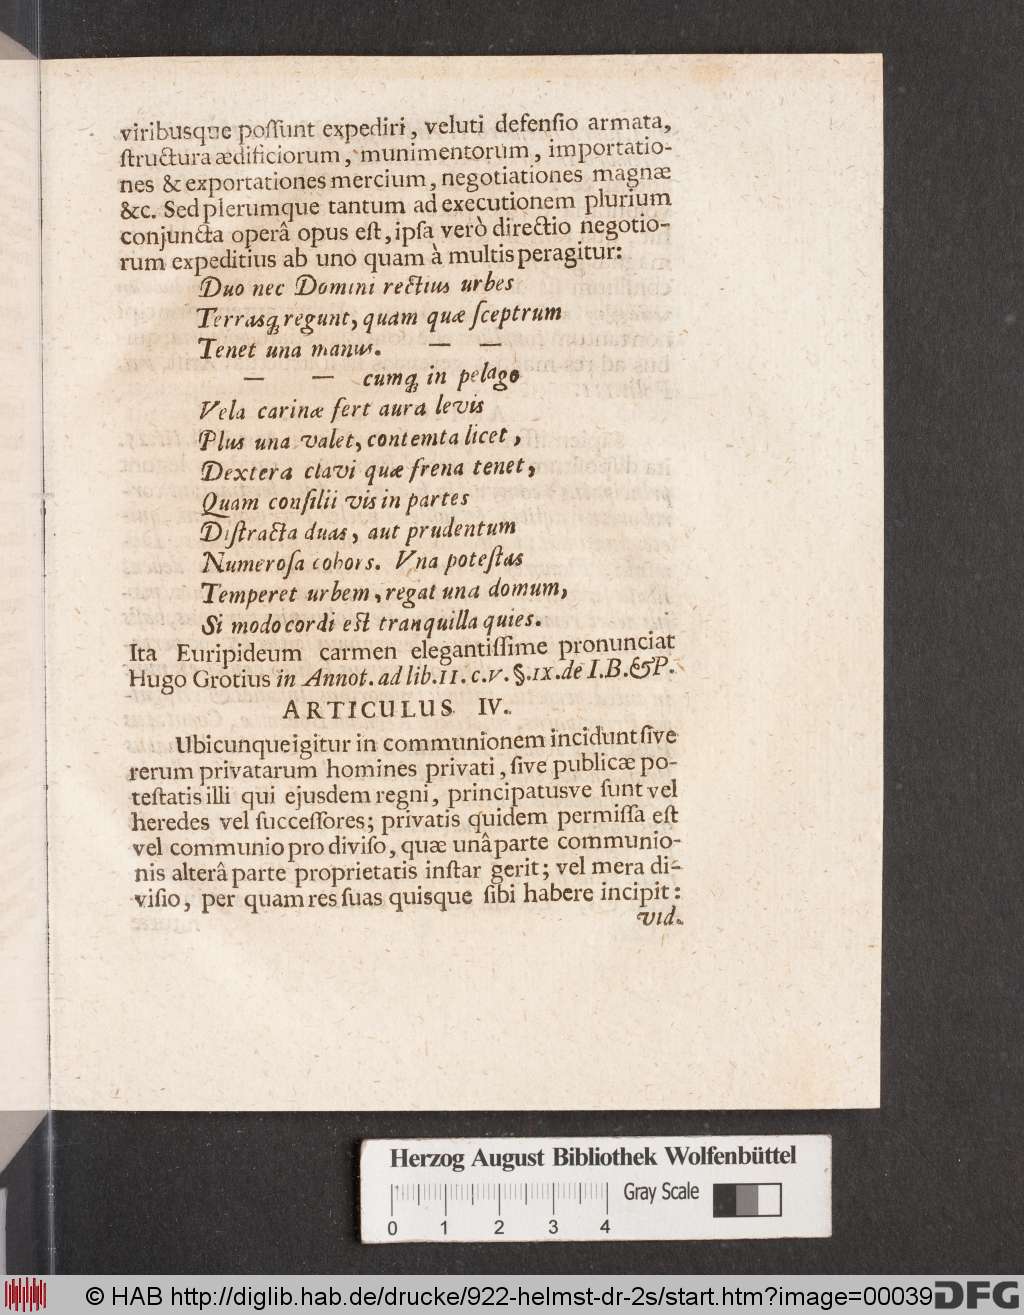 viribusque poſſunt expediri, veluti defenſio armata,
ſtructura ædificiorum, munimentorum, importatio-
nes & exportationes mercium, negotiationes magnæ
&c. Sed plerumque tantum ad executionem plurium
conjuncta operâ opus eſt, ipſa verò directio negotio-
rum expeditius ab uno quam à multis peragitur:
Duo nec Domini rectius urbes
Terrasq́; regunt, quam quæ ſceptrum
Tenet una manus. — —
— — cumq́; in pelago
Vela carinæ fert aura levis
Plus una valet, contemta licet,
Dextera clavi quæ frena tenet,
Quam conſilii vis in partes
Diſtracta duas, aut prudentum
Numeroſa cohors. Vna poteſtas
Temperet urbem, regat una domum,
Si modo cordi eſt tranquilla quies.
Ita Euripideum carmen elegantiſſime pronunciat
Hugo Grotius in Annot. ad lib. II. c. V. §. IX. de I. B. & P.
ARTICULUS IV.
Ubicunque igitur in communionem incidunt ſive
rerum privatarum homines privati, ſive publicæ po-
teſtatis illi qui ejusdem regni, principatusve ſunt vel
heredes vel ſucceſſores; privatis quidem permiſſa eſt
vel communio pro diviſo, quæ unâ parte communio-
nis alterâ parte proprietatis inſtar gerit; vel mera di-
viſio, per quam res ſuas quisque ſibi habere incipit:
vid.
Herzog August Bibliothek Wolfenbüttel
Gray Scale
0 1 2 3 4
© HAB http://diglib.hab.de/drucke/922-helmst-dr-2s/start.htm?image=00039
DFG